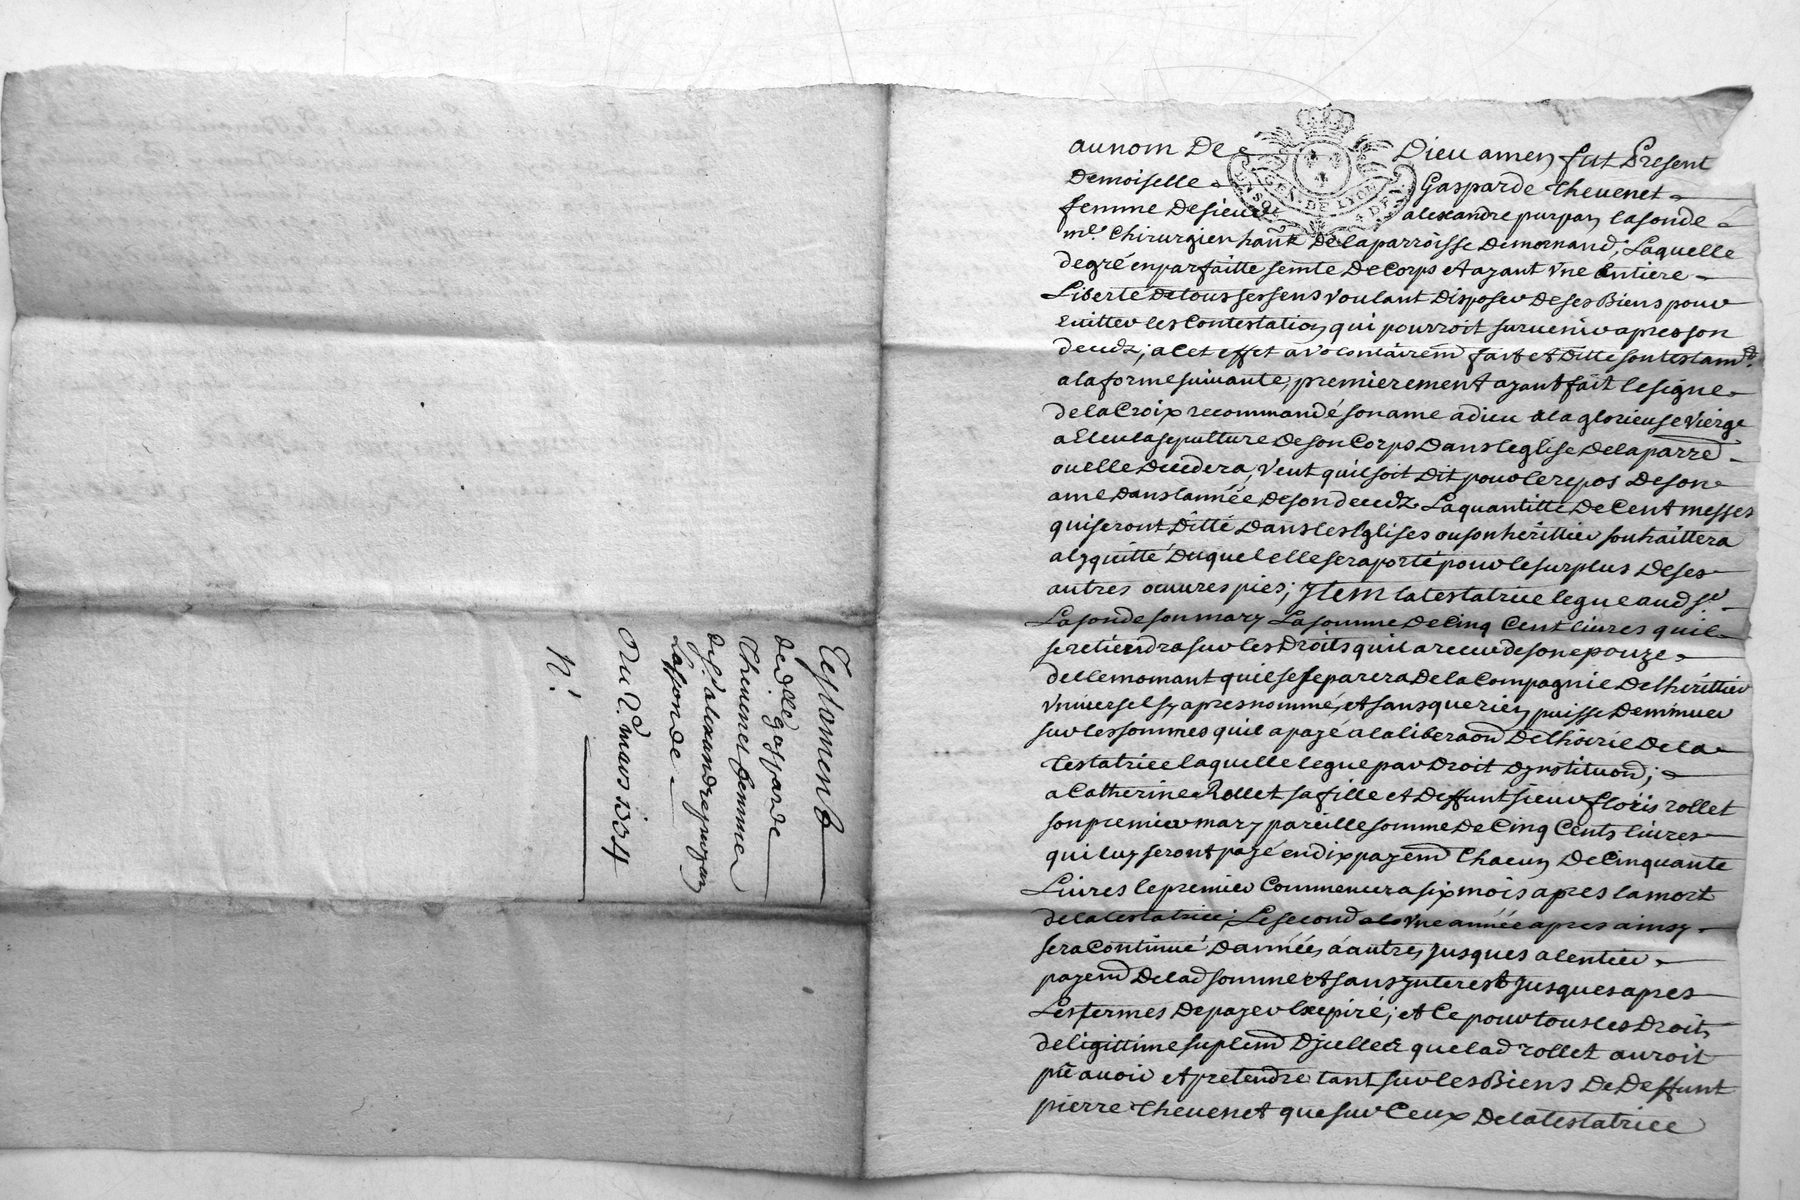 Testament
de dlle gasparde
Thevenet femme
de sr alexandre purpan
Lassonde
Du 2e mars 1734
N.
au nom De Dieu amen fut Present
Demoiselle Gasparde thevenet
femme De sieur alexandre purpan lasonde
me Chirurgien hant De la parroisse De mornand, Laquelle
de gré en parfaitte sente De Corps et ayant Vne Entiere
Liberté De tous ses sens voulant Disposer De ses Biens pour
Euitter les Contestation qui pourroit suruenir apres son
decedz, a cet effet a volontairemt fait et Ditté son testamt
a la forme suivante, premierement ayant fait le signe
de la Croix recommandé son ame a dieu a la glorieuse Vierge
a Eleu la sepulture De son Corps Dans leglise De la parre
ou elle Decedera, Veut quil soit Dit pour le repos De son
ame Dans lannée De son decedz La quantitté De Cent messes
qui seront Ditté Dans les Eglises ou son herittier souhaittera
a lzquitté Duquel elle se raporté pour le surplus De ses
autres oeuures pies; Jtem la testatrice legue aud sr
Lasonde son mary La somme De Cinq Cent liures quil
se retiendra sur les Droits quil a receu de son epouze
de le momant quil se separera De la Compagnie De lherittier
Vniuersel sy apres nommé, et sans que rien puisse Deminuer
sur les sommes quil a payé a la liberaon De lhoirie De la
testatrice laquelle legue par Droit Dynstituon;
a Catherine Rollet sa fille et Deffunt sieur floris rollet
son premier mary pareille somme De Cinq Cents liures
qui luy seront payé en dix payemt Chacun De Cinquante
Liures le premier Commencera six mois apres la mort
de la testatrice, Le second a lo Vne année apres ainsy
sera Continué Dannéés a autres jusques a lentier
payemt De lad somme et sans jnterest jusques apres
Les termes De payer Expiré; et Ce pour tous les Droits
de ligittime suplemt Djcelle et que lad rollet auroit
pu auoir et pretendre tant sur les Biens De Deffunt
pierre thevenet que sur Ceux De la testatrice